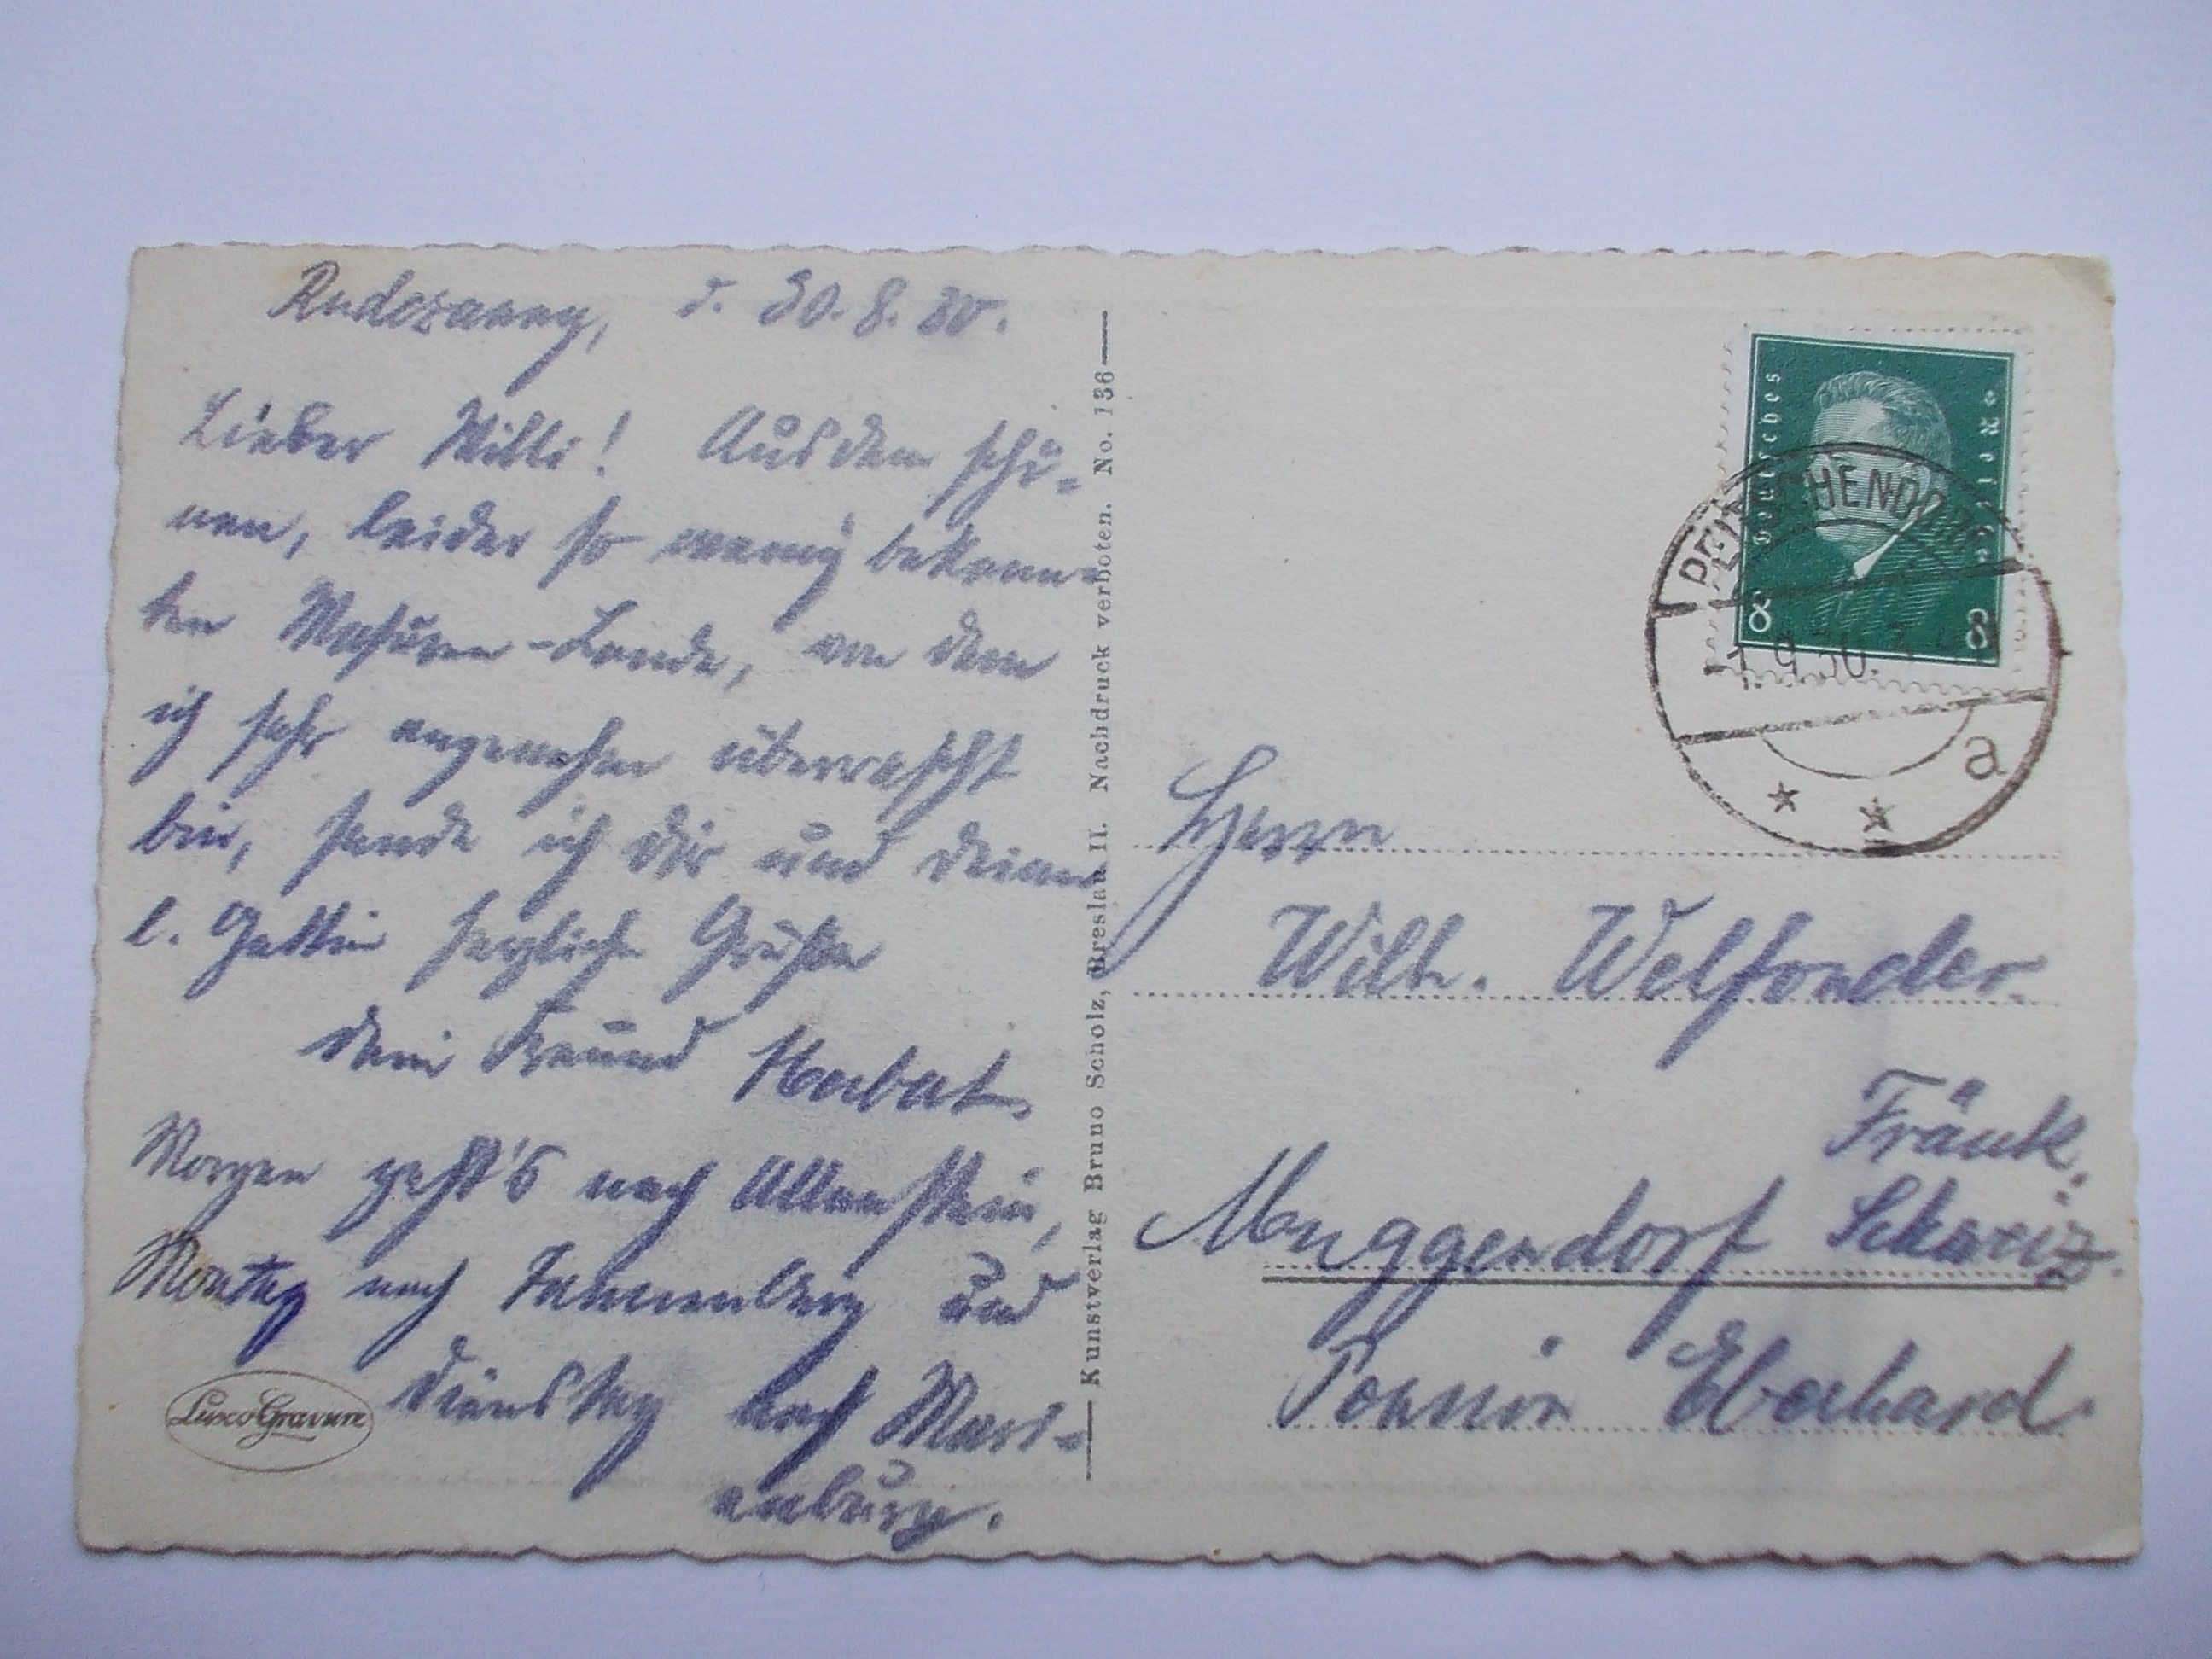 Rudczanny, d. 30.8.30.
Lieber Willi! Aus dem schö-
nen, leider so wenig bekann-
ten Masuren-Lande, von dem
ich sehr angenehm überrascht
bin, sende ich dir und deiner
l. Gattin herzliche Grüße
dein Freund Herbert.
Morgen geht's nach Allenstein,
Montag nach Tannenberg und
Dienstag nach Mari-
enburg.
LuxoGravure
Kunstverlag Bruno Scholz, Breslau II. Nachdruck verboten. No. 136
Deutsches Reich
8 8
1.9.30.
a
Herrn
Wilh. Welfonder.
Fränk.
Muggendorf Schweiz.
Pension Eberhard.